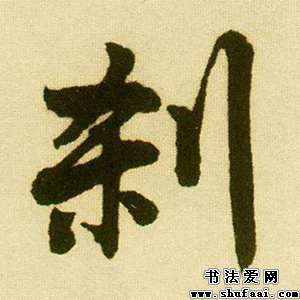 刹
书法爱网
www.shufaai.com